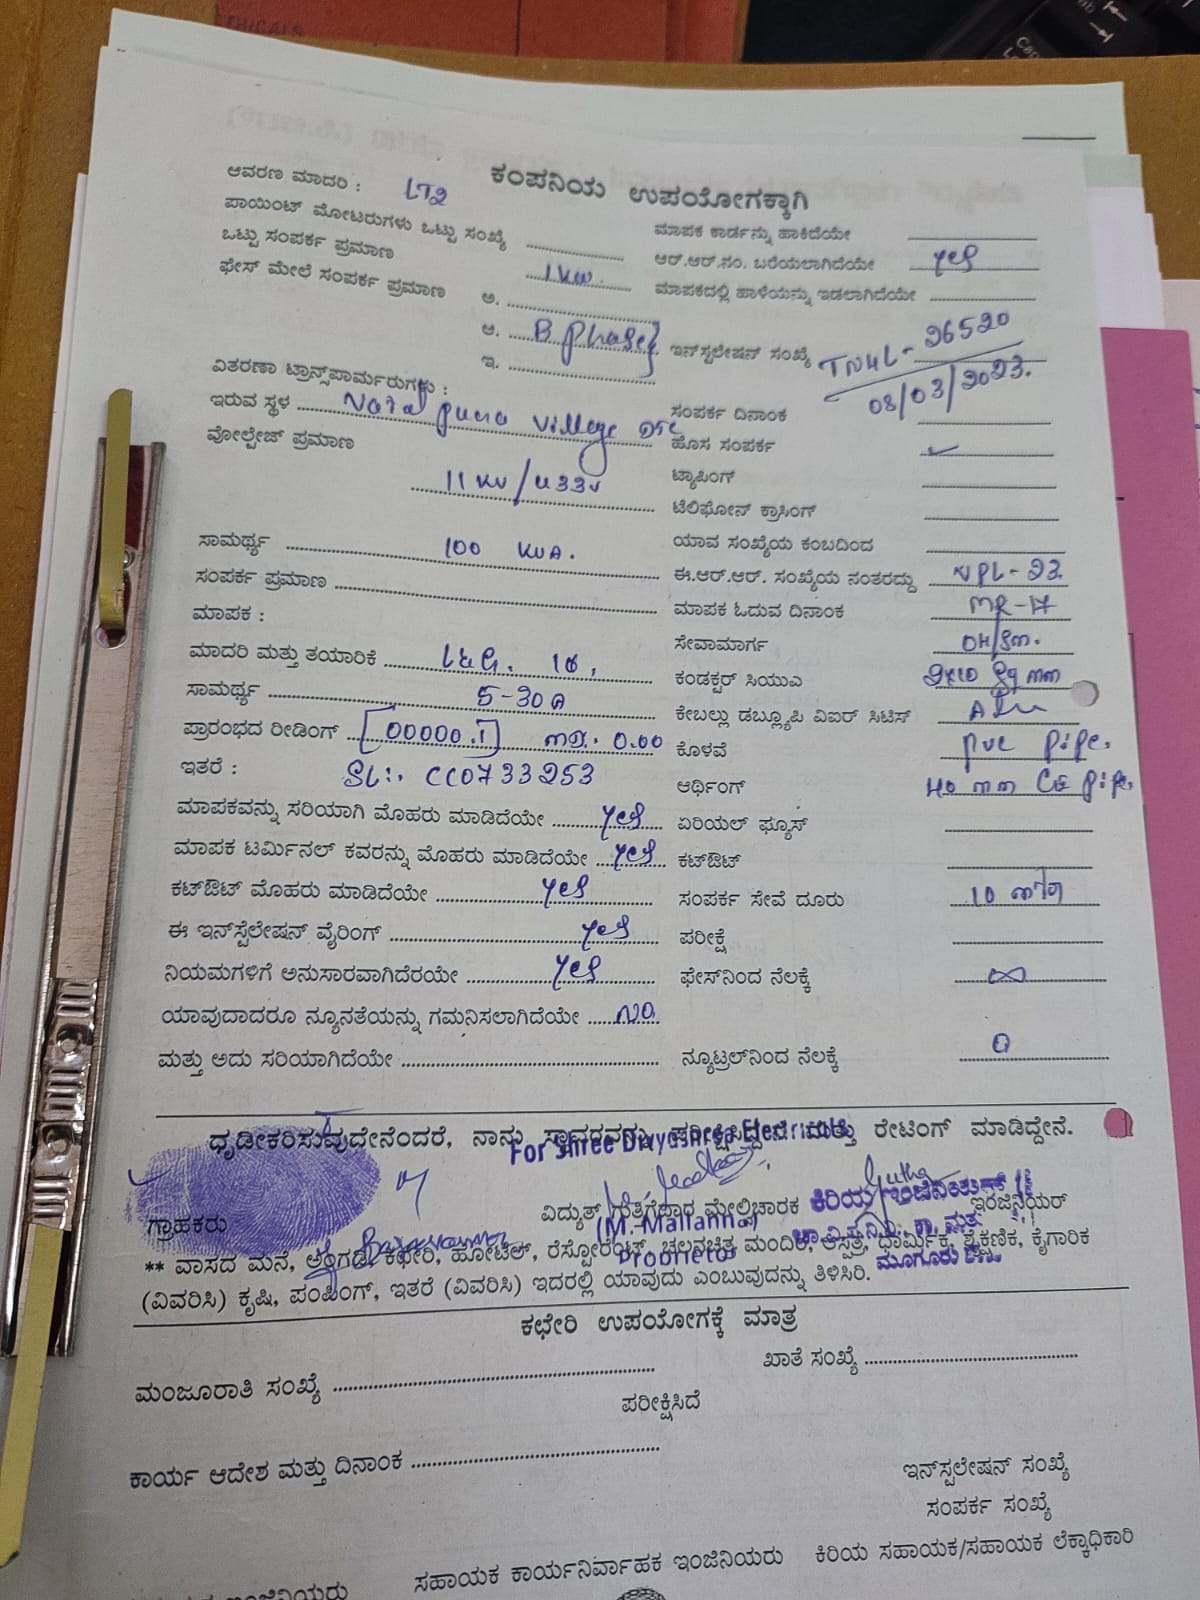 ಕಂಪನಿಯ ಉಪಯೋಗಕ್ಕಾಗಿ
ಆವರಣ ಮಾದರಿ : LT2
ಪಾಯಿಂಟ್ ಮೋಟರುಗಳು ಒಟ್ಟು ಸಂಖ್ಯೆ ಮಾಪಕ ಕಾರ್ಡನ್ನು ಹಾಕಿದೆಯೇ
ಒಟ್ಟು ಸಂಪರ್ಕ ಪ್ರಮಾಣ 1 KW. ಆರ್.ಆರ್.ನಂ. ಬರೆಯಲಾಗಿದೆಯೇ yes
ಫೇಸ್ ಮೇಲೆ ಸಂಪರ್ಕ ಪ್ರಮಾಣ ಅ. ಮಾಪಕದಲ್ಲಿ ಹಾಳೆಯನ್ನು ಇಡಲಾಗಿದೆಯೇ
ಆ. B phase ಇನ್‌ಸ್ಟಲೇಷನ್ ಸಂಖ್ಯೆ TNHL- 26520
ಇ.
08/03/2023.
ವಿತರಣಾ ಟ್ರಾನ್ಸ್‌ಪಾರ್ಮರುಗಳು :
ಇರುವ ಸ್ಥಳ village ಸಂಪರ್ಕ ದಿನಾಂಕ
ವೋಲ್ಟೇಜ್ ಪ್ರಮಾಣ ಹೊಸ ಸಂಪರ್ಕ ✓
11 KV/433V ಟ್ಯಾಪಿಂಗ್
ಟೆಲಿಫೋನ್ ಕ್ರಾಸಿಂಗ್
ಸಾಮರ್ಥ್ಯ 100 KVA. ಯಾವ ಸಂಖ್ಯೆಯ ಕಂಬದಿಂದ
ಸಂಪರ್ಕ ಪ್ರಮಾಣ ಈ.ಆರ್.ಆರ್. ಸಂಖ್ಯೆಯ ನಂತರದ್ದು NPL-23
ಮಾಪಕ : ಮಾಪಕ ಓದುವ ದಿನಾಂಕ MR-17
ಮಾದರಿ ಮತ್ತು ತಯಾರಿಕೆ L&G. 1Φ, ಸೇವಾಮಾರ್ಗ OH/sm.
ಸಾಮರ್ಥ್ಯ 5-30A ಕಂಡಕ್ಟರ್ ಸಿಯುಎ 2x10 sq mm
ಪ್ರಾರಂಭದ ರೀಡಿಂಗ್ 00000.1 MD. 0.00 ಕೇಬಲ್ಲು ಡಬ್ಲ್ಯೂಪಿ ವಿಐರ್ ಸಿಟಿಸ್
ಇತರೆ : SL:. CC0733253 ಕೊಳವೆ pvc pipe.
ಆರ್ಥಿಂಗ್ 40 mm pipe.
ಮಾಪಕವನ್ನು ಸರಿಯಾಗಿ ಮೊಹರು ಮಾಡಿದೆಯೇ yes ಏರಿಯಲ್ ಫ್ಯೂಸ್
ಮಾಪಕ ಟರ್ಮಿನಲ್ ಕವರನ್ನು ಮೊಹರು ಮಾಡಿದೆಯೇ yes ಕಟ್‌ಔಟ್
ಕಟ್‌ಔಟ್ ಮೊಹರು ಮಾಡಿದೆಯೇ yes ಸಂಪರ್ಕ ಸೇವೆ ದೂರು 10
ಈ ಇನ್‌ಸ್ಟೆಲೇಷನ್ ವೈರಿಂಗ್ yes ಪರೀಕ್ಷೆ
ನಿಯಮಗಳಿಗೆ ಅನುಸಾರವಾಗಿದೆರಯೇ yes ಫೇಸ್‌ನಿಂದ ನೆಲಕ್ಕೆ ∞
ಯಾವುದಾದರೂ ನ್ಯೂನತೆಯನ್ನು ಗಮನಿಸಲಾಗಿದೆಯೇ NO
ಮತ್ತು ಅದು ಸರಿಯಾಗಿದೆಯೇ ನ್ಯೂಟ್ರಲ್‌ನಿಂದ ನೆಲಕ್ಕೆ 0
ಧೃಡೀಕರಿಸುವುದೇನೆಂದರೆ, ನಾನು ಸ್ಥಾವರವನ್ನು ಪರೀಕ್ಷಿಸಿದ್ದೇನೆ ಮತ್ತು ರೇಟಿಂಗ್ ಮಾಡಿದ್ದೇನೆ.
For Shree Divyashree Electricals
ಗ್ರಾಹಕರು ವಿದ್ಯುತ್ ಗುತ್ತಿಗೆದಾರ ಮೇಲ್ವಿಚಾರಕ ಕಿರಿಯ ಇಂಜಿನಿಯರ್ ಇಂಜಿನಿಯರ್
(M. Mallanna)
Proprietor
** ವಾಸದ ಮನೆ, ಅಂಗಡಿ, ಕಛೇರಿ, ಹೋಟೆಲ್, ರೆಸ್ಟೋರೆಂಟ್, ಚಲನಚಿತ್ರ ಮಂದಿರ, ಆಸ್ಪತ್ರೆ, ಧಾರ್ಮಿಕ, ಶೈಕ್ಷಣಿಕ, ಕೈಗಾರಿಕ
(ವಿವರಿಸಿ) ಕೃಷಿ, ಪಂಪಿಂಗ್, ಇತರೆ (ವಿವರಿಸಿ) ಇದರಲ್ಲಿ ಯಾವುದು ಎಂಬುವುದನ್ನು ತಿಳಿಸಿರಿ.
ಕಛೇರಿ ಉಪಯೋಗಕ್ಕೆ ಮಾತ್ರ
ಮಂಜೂರಾತಿ ಸಂಖ್ಯೆ ಖಾತೆ ಸಂಖ್ಯೆ
ಪರೀಕ್ಷಿಸಿದೆ
ಕಾರ್ಯ ಆದೇಶ ಮತ್ತು ದಿನಾಂಕ
ಇನ್‌ಸ್ಟಲೇಷನ್ ಸಂಖ್ಯೆ
ಸಂಪರ್ಕ ಸಂಖ್ಯೆ
ಸಹಾಯಕ ಕಾರ್ಯನಿರ್ವಾಹಕ ಇಂಜಿನಿಯರು ಕಿರಿಯ ಸಹಾಯಕ/ಸಹಾಯಕ ಲೆಕ್ಕಾಧಿಕಾರಿ
ಇಂಜಿನಿಯರು